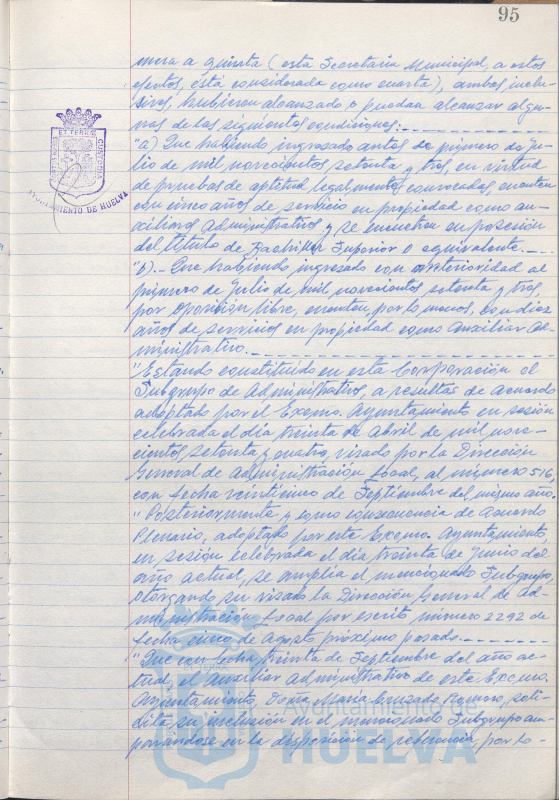 95
mera a quinta (esta Secretaría Municipal, a estos
efectos, está considerada como cuarta), ambas inclu-
sives, hubieran alcanzado o puedan alcanzar algu-
nas de las siguientes condiciones:
"a) Que habiendo ingresado antes de primero de ju-
lio de mil novecientos setenta y tres, en virtud
de pruebas de aptitud legalmente convocadas cuenten
con cinco años de servicio en propiedad como au-
xiliares Administrativos y se encuentren en posesión
del título de Bachiller Superior o equivalente.
"b).- Que habiendo ingresado con anterioridad al
primero de Julio de mil novecientos setenta y tres,
por oposición libre, cuenten, por lo menos, con diez
años de servicios en propiedad como Auxiliar Ad-
ministrativo.
"Estando constituido en esta Corporación el
Subgrupo de Administrativos, a resultas de Acuerdo
adoptado por el Excmo. Ayuntamiento en sesión
celebrada el día treinta de Abril de mil nove-
cientos setenta y cuatro, visado por la Dirección
General de Administración Local, al número 516,
con fecha veinticinco de Septiembre del mismo año.
"Posteriormente y como consecuencia de Acuerdo
Plenario, adoptado por este Excmo. Ayuntamiento,
en sesión celebrada el día treinta de Junio del
año actual, se amplía el mencionado Subgrupo
otorgando su visado la Dirección General de Ad-
ministración Local por escrito número 2292 de
fecha cinco de Agosto próximo pasado.
"Que con fecha treinta de Septiembre del año ac-
tual, el Auxiliar Administrativo de este Excmo.
Ayuntamiento, Doña María Cruzado Romero, soli-
cita su inclusión en el mencionado Subgrupo am-
parándose en la disposición de referencia, por lo
AYUNTAMIENTO DE HUELVA
Ayuntamiento de
HUELVA